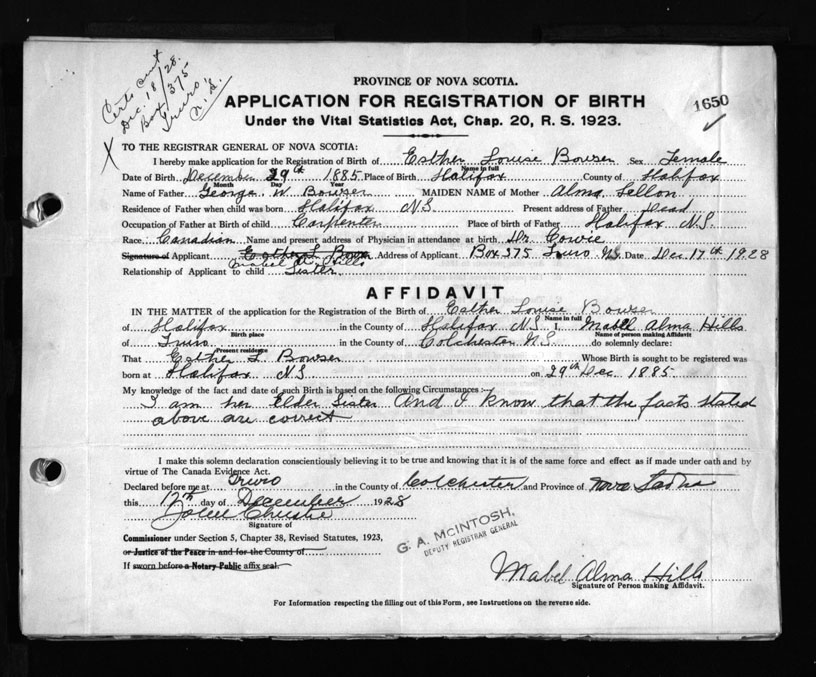 Certs out
Dec. 18/28.
Box 375
Truro,
N.S.
PROVINCE OF NOVA SCOTIA.
APPLICATION FOR REGISTRATION OF BIRTH
1650
Under the Vital Statistics Act, Chap. 20, R. S. 1923.
TO THE REGISTRAR GENERAL OF NOVA SCOTIA:
I hereby make application for the Registration of Birth of Esther Louise Bowser Sex Female
Name in full
Date of Birth December 29th 1885 Place of Birth Halifax County of Halifax
Month Day Year
Name of Father George W Bowser MAIDEN NAME of Mother Alma Sellon
Residence of Father when child was born Halifax N.S Present address of Father Dead
Occupation of Father at Birth of child Carpenter Place of birth of Father Halifax N.S.
Race Canadian Name and present address of Physician in attendance at birth Dr. Cowie
Signature of Applicant Esther L Bowser Address of Applicant Box 375 Truro N.S. Date Dec 17th 1928
Mabel A. Hills
Relationship of Applicant to child Sister
AFFIDAVIT
IN THE MATTER of the application for the Registration of the Birth of Esther Louise Bowser
Name in full
of Halifax in the County of Halifax N.S I, Mabel Alma Hills
Birth place Name of person making Affidavit
of Truro in the County of Colchester N.S. do solemnly declare:
Present residence
That Esther L Bowser Whose Birth is sought to be registered was
born at Halifax N.S on 29th Dec. 1885
My knowledge of the fact and date of such Birth is based on the following Circumstances:—
I am her Elder Sister And I know that the facts stated
above are correct
I make this solemn declaration conscientiously believing it to be true and knowing that it is of the same force and effect as if made under oath and by
virtue of The Canada Evidence Act.
Declared before me at Truro in the County of Colchester and Province of Nova Scotia
this 17th day of December 1928
Christie
Signature of
Commissioner under Section 5, Chapter 38, Revised Statutes, 1923,
or Justice of the Peace in and for the County of
If sworn before a Notary Public affix seal.
G. A. McINTOSH,
DEPUTY REGISTRAR GENERAL
Mabel Alma Hills
Signature of Person making Affidavit.
For Information respecting the filling out of this Form, see Instructions on the reverse side.